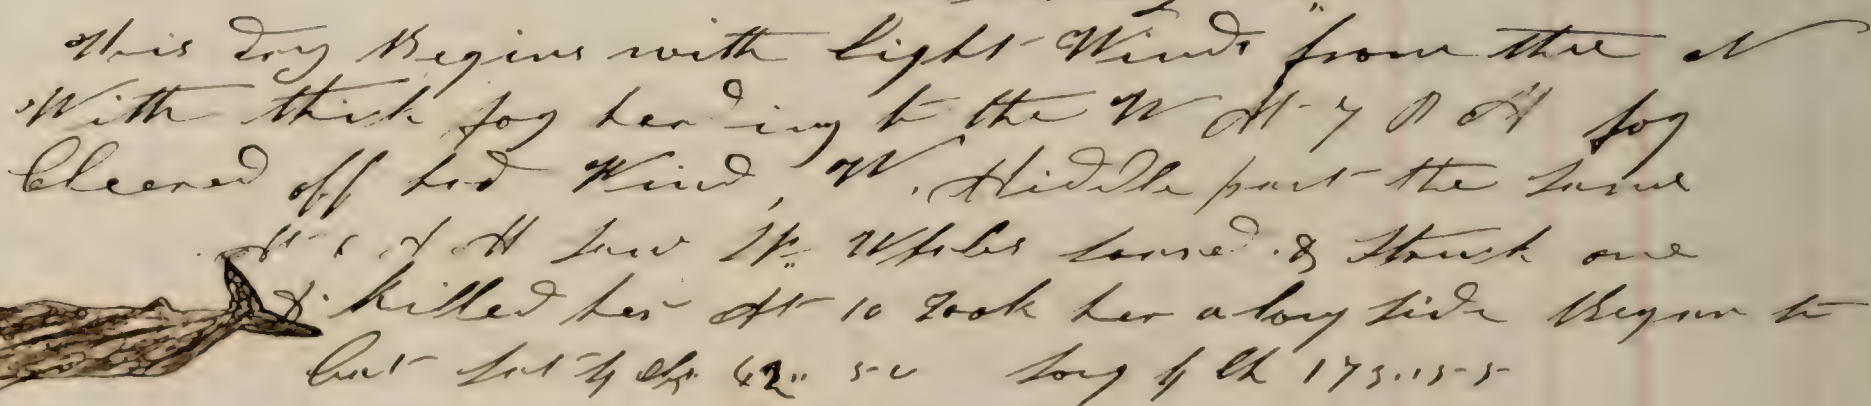 This Day Begins with light Winds from the N
With thick fog heading to the W At 7 A M fog
Cleared off had Wind, W. Middle part the same
At 6 A M saw Sp. Whales lowered & Struck one
& killed her At 10 Took her along side Began to
Cut Lat by Ch 42.. 50 Long by Ch 173..55